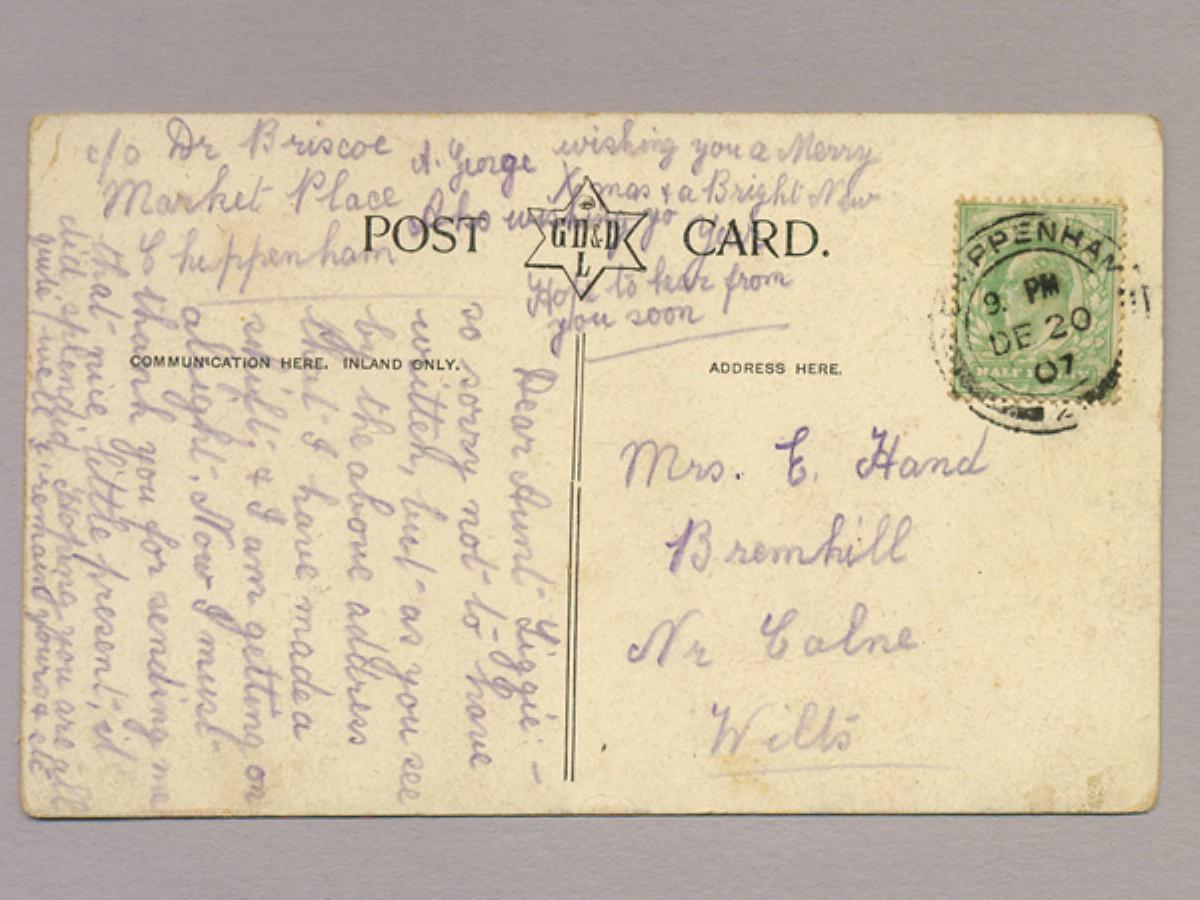 c/o Dr Briscoe
Market Place
Chippenham
Dear Aunt Liggie :-
so sorry not to have
written, but as you see
by the above address
that I have made a
shift, & I am getting on
alright. Now I must
thank you for sending me
that nice little present, it
did splendid. Hoping you are all
quite well I remain yours &
A. George
wishing you a Merry
Xmas & a Bright New
Year
Hope to hear from
you soon
POST CARD.
G D & D
L
COMMUNICATION HERE. INLAND ONLY.
ADDRESS HERE.
Mrs. E. Hand
Bremhill
Nr Calne
Wilts
CHIPPENHAM
9. PM
DE 20
07
HALF PENNY